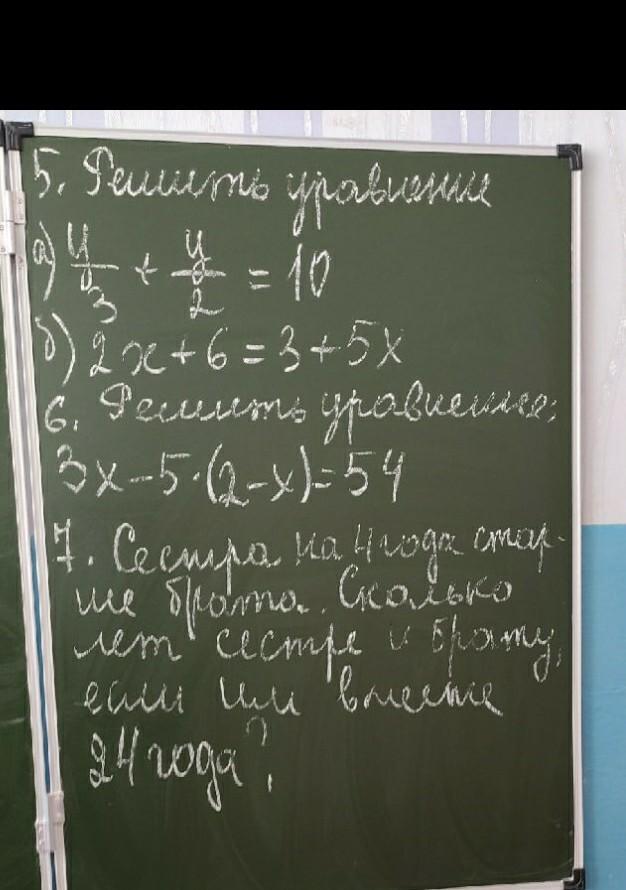 5. Решить уравнение
а) y/3 + y/2 = 10
б) 2x+6=3+5x
6. Решить уравнение:
3x-5·(2-x)=54
7. Сестра на 4 года стар-
ше брата. Сколько
лет сестре и брату,
если им вместе
24 года?